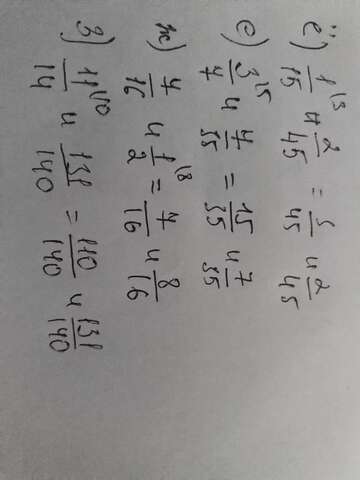 ё) 1/15 \3 и 2/45 = 3/45 и 2/45
е) 3/7 \5 и 7/35 = 15/35 и 7/35
ж) 7/16 и 1/2 \8 = 7/16 и 8/16
з) 11/14 \10 и 131/140 = 110/140 и 131/140